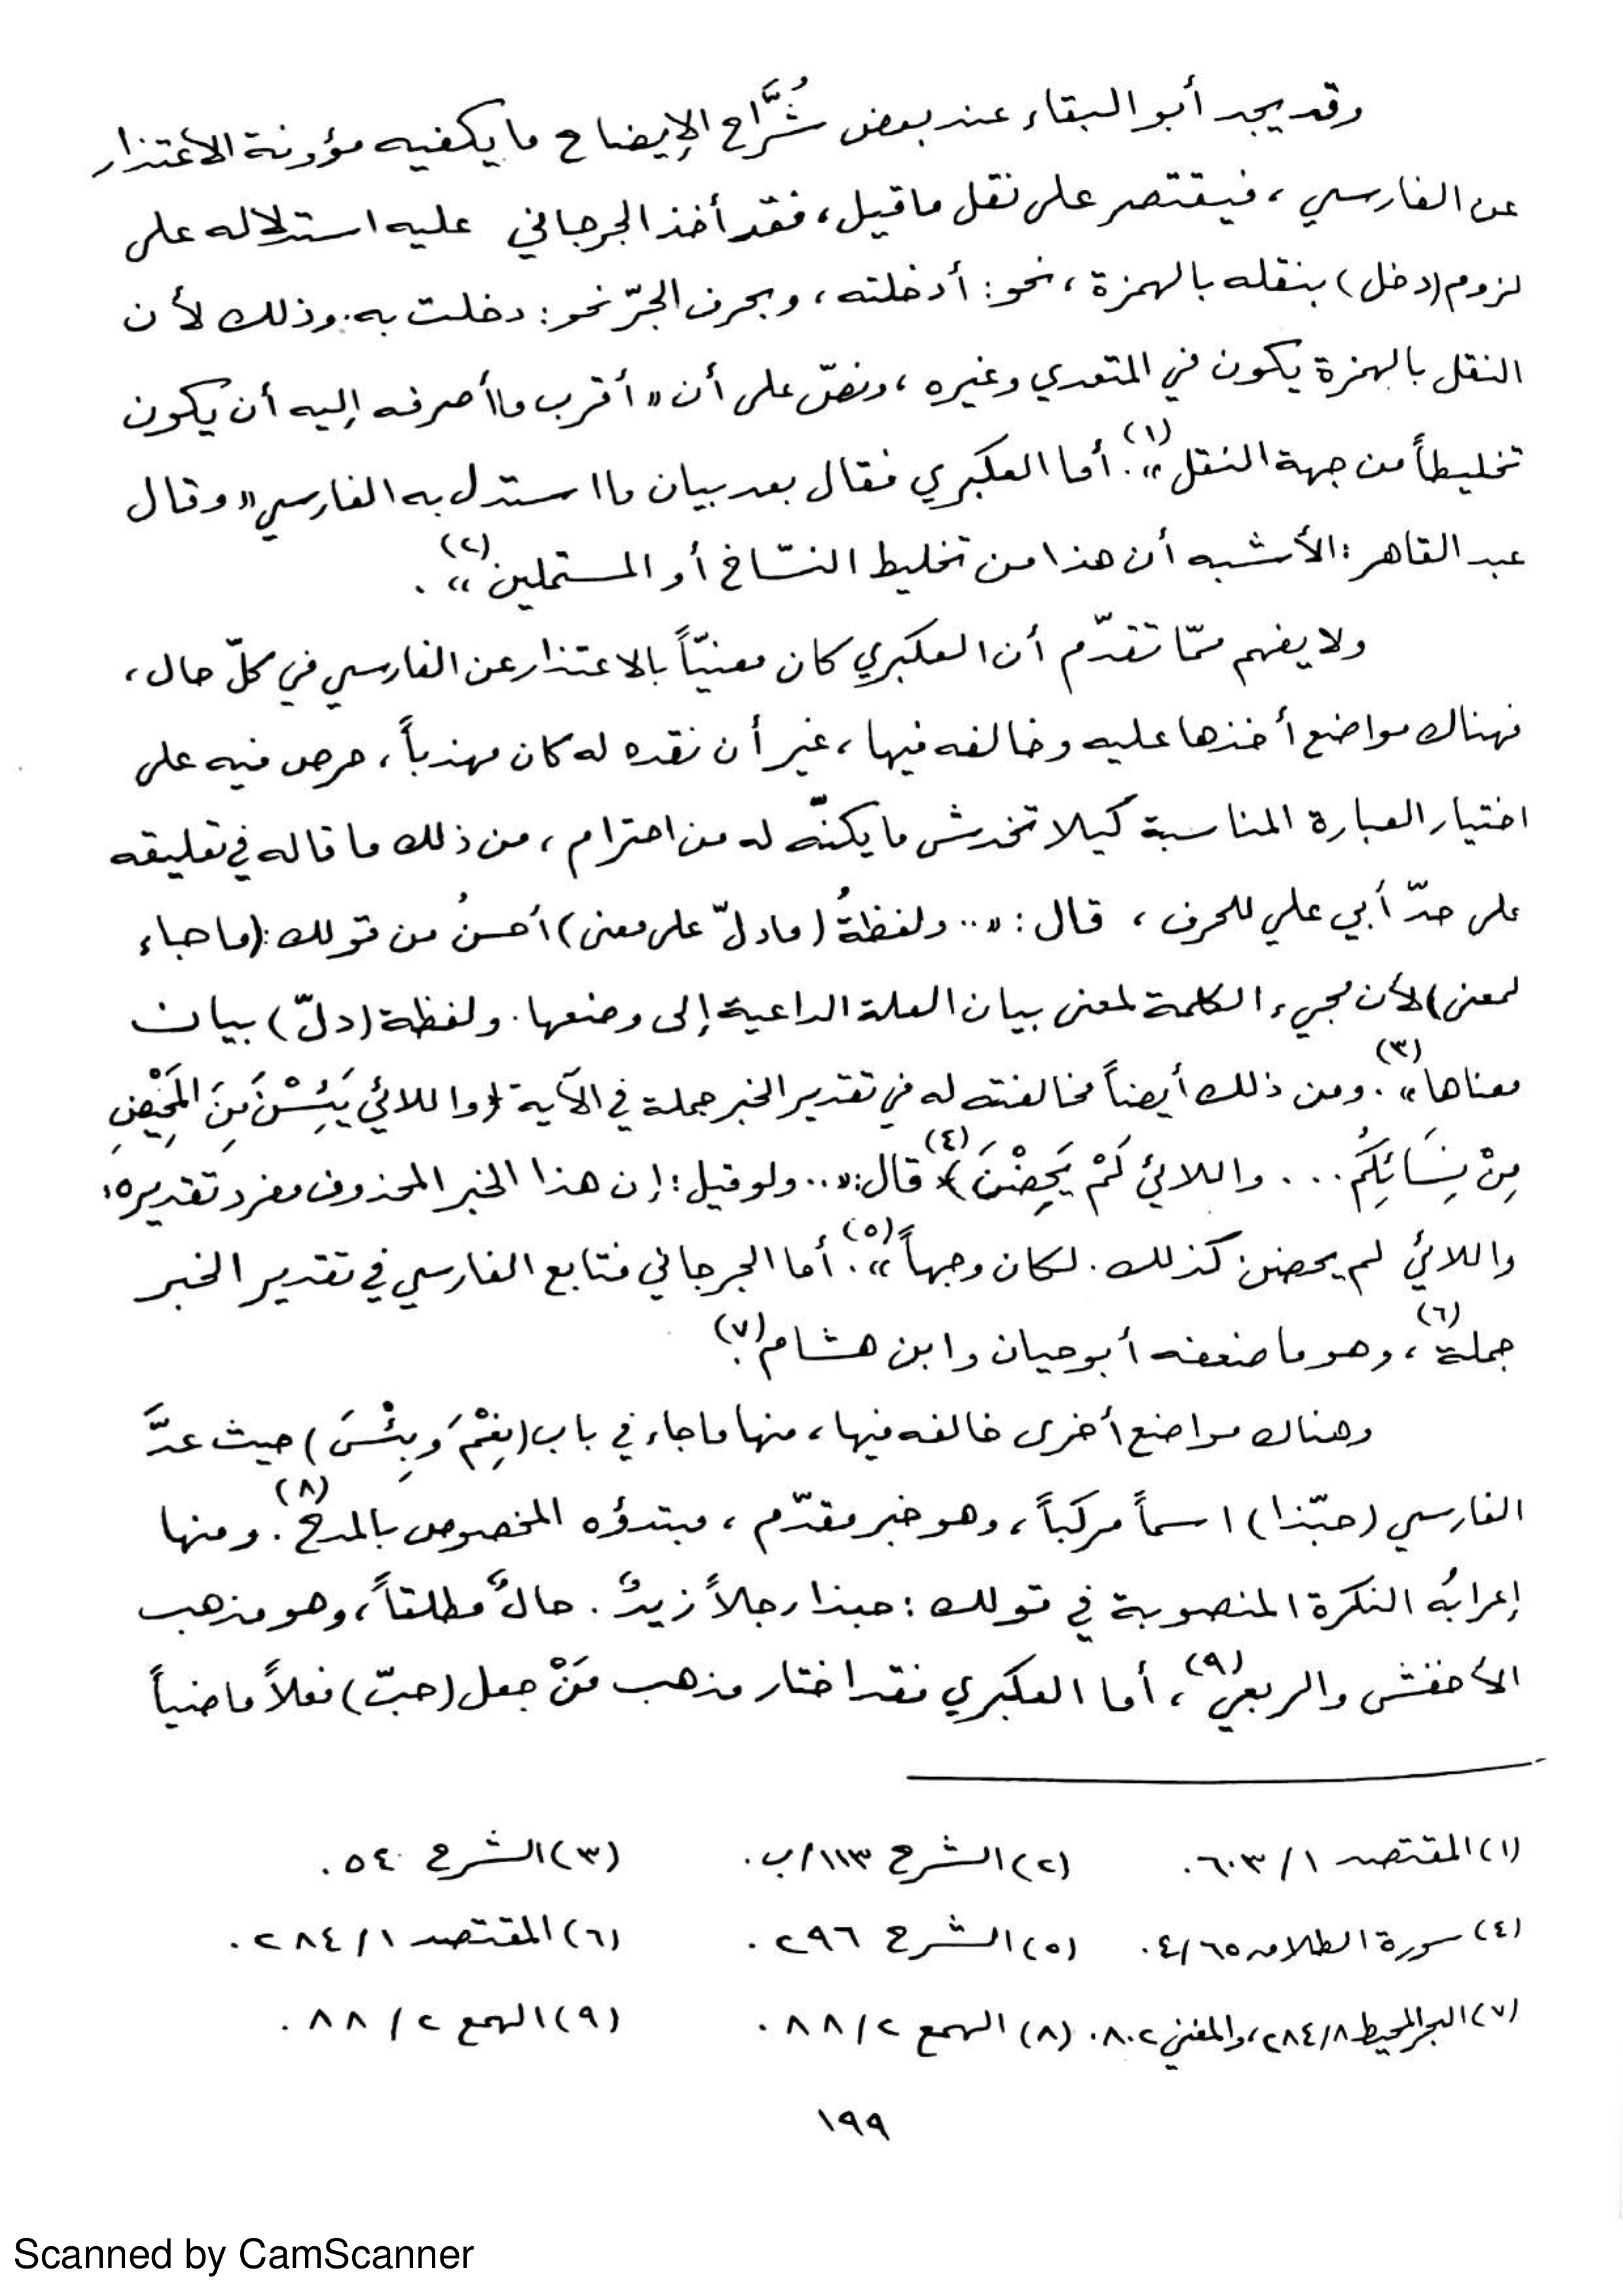 وقد يجد أبو البقاء عند بعض شُرَّاح الإيضاح ما يكفيه مؤونة الاعتذار
عن الفارسي ، فيقتصر على نقل ما قيل ، فقد أخذ الجرجاني عليه استدلاله على
لزوم (دخل) بنقله بالهمزة ، نحو : أدخلته ، وبحرف الجرّ نحو : دخلت به . وذلك لأن
النقل بالهمزة يكون في المتعدي وغيره ، ونصّ على أن « أقرب ما أصرفه إليه أن يكون
تخليطاً من جهة النقل » (١) . أما العكبري فقال بعد بيان ما استدل به الفارسي « وقال
عبد القاهر : الأشبه أن هذا من تخليط النسّاخ أو المستملين » (٢) .
ولا يفهم ممّا تقدّم أن العكبري كان معنيّاً بالاعتذار عن الفارسي في كلّ حال ،
فهناك مواضع أخذها عليه وخالفه فيها ، غير أن نقده له كان مهذباً ، حرص فيه على
اختيار العبارة المناسبة كيلا تخدش ما يكنّه له من احترام ، من ذلك ما قاله في تعليقه
على حدّ أبي علي للحرف ، قال : « .. ولفظةُ (ما دلّ على معنى) أحسنُ من قولك : (ما جاء
لمعنى) لأن مجيء الكلمة لمعنى بيان العلة الداعية إلى وضعها . ولفظة (دلّ) بيان
معناها » (٣) . ومن ذلك أيضاً مخالفته له في تقدير الخبر جملة في الآية ﴿ واللائي يَئِسْنَ مِنَ المَحِيْضِ
مِنْ نِسَائِكُم . . . واللائي لَمْ يَحِضْنَ ﴾ (٤) قال : « .. ولو قيل : إن هذا الخبر المحذوف مفرد تقديره :
واللائي لم يحضن كذلك . لكان وجهاً » (٥) . أما الجرجاني فتابع الفارسي في تقدير الخبر
جملة (٦) ، وهو ما ضعفه أبو حيان وابن هشام (٧) .
وهناك مواضع أخرى خالفه فيها ، منها ما جاء في باب (نِعْمَ وَبِئْسَ) حيث عدَّ
الفارسي (حبّذا) اسماً مركباً ، وهو خبر مقدّم ، مبتدؤه المخصوص بالمدح (٨) . ومنها
إعرابُه النكرة المنصوبة في قولك : حبذا رجلاً زيدٌ . حالٌ مطلقاً ، وهو مذهب
الأخفش والربعي (٩) ، أما العكبري فقد اختار مذهب مَنْ جعل (حبّ) فعلاً ماضياً
(١) المقتصد ١ / ٦٠٣ . (٢) الشرح ١١٣ / ب . (٣) الشرح ٥٤ .
(٤) سورة الطلاق ٦٥ / ٤ . (٥) الشرح ٢٩٦ . (٦) المقتصد ١ / ٢٨٤ .
(٧) البحر المحيط ٨ / ٢٨٤ ، والمغني ٨٠٢ . (٨) الهمع ٢ / ٨٨ . (٩) الهمع ٢ / ٨٨ .
١٩٩
Scanned by CamScanner